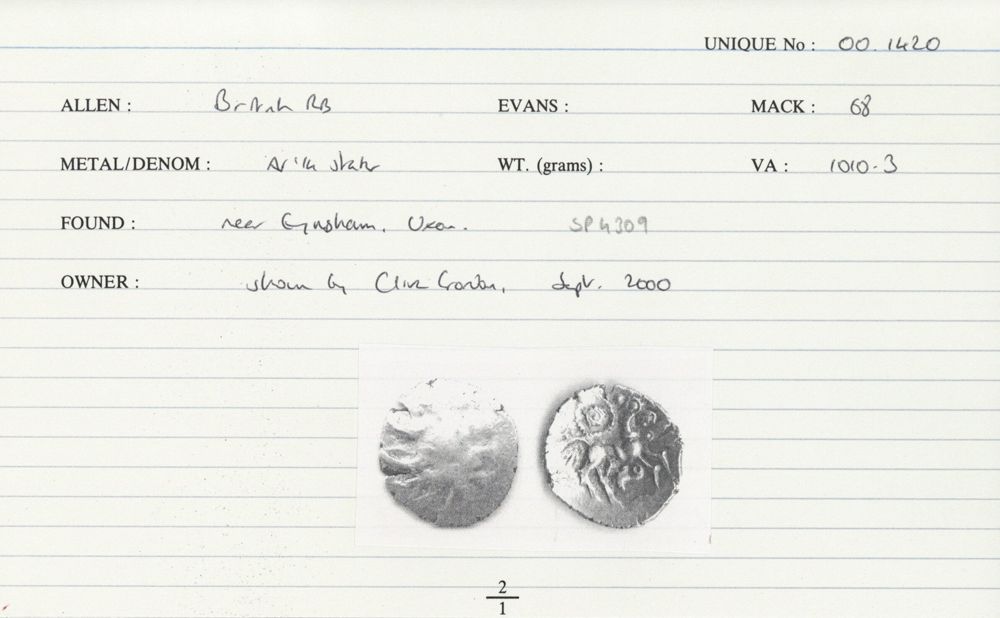 UNIQUE No : 00.1420
ALLEN : British RB EVANS : MACK : 68
METAL/DENOM : stater WT. (grams) : VA : 1010-3
FOUND : near Eynsham, Oxon. SP4309
OWNER : shown by Clive Sept. 2000
2
1